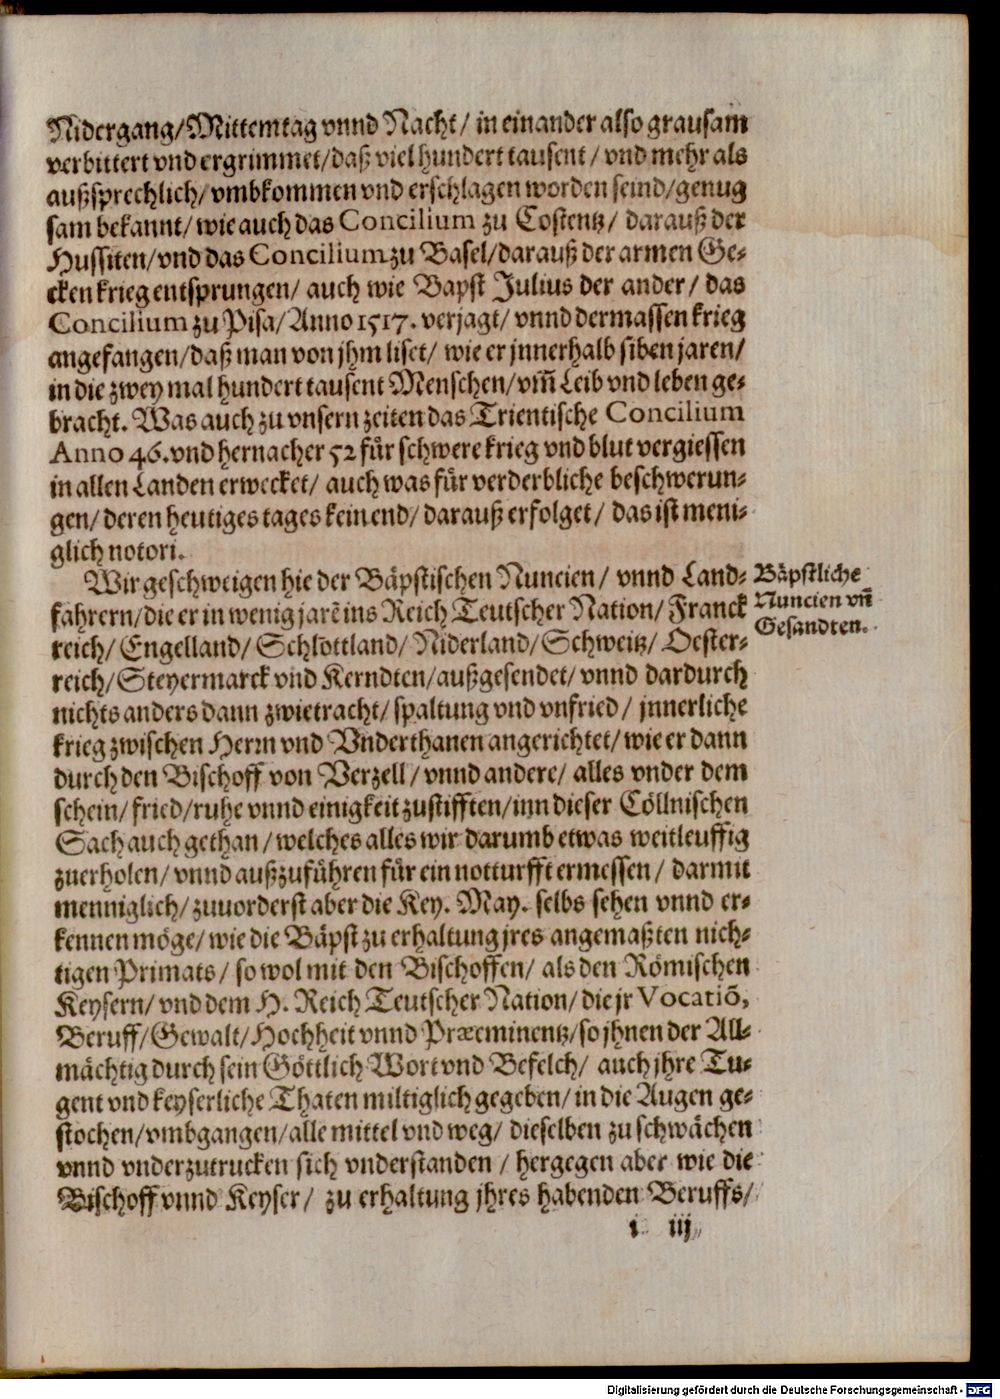 Nidergang/Mittemtag vnnd Nacht/ in einander also grausam
verbittert vnd ergrimmet/daß viel hundert tausent/ vnd mehr als
außsprechlich/ vmbkommen vnd erschlagen worden seind/genug
sam bekannt/ wie auch das Concilium zu Costentz/ darauß der
Hussiten/vnd das Concilium zu Basel/darauß der armen Ge-
cken krieg entsprungen/ auch wie Bapst Julius der ander/ das
Concilium zu Pisa/Anno 1517. verjagt/ vnnd dermassen krieg
angefangen/daß man von jhm liset/ wie er jnnerhalb siben jaren/
in die zwey mal hundert tausent Menschen/ vm̃ Leib vnd leben ge-
bracht. Was auch zu vnsern zeiten das Trientische Concilium
Anno 46. vnd hernacher 52 für schwere krieg vnd blut vergiessen
in allen Landen erwecket/ auch was für verderbliche beschwerun-
gen/ deren heutiges tages kein end/ darauß erfolget/ das ist meni-
glich notori.
Wir geschweigen hie der Bäpstischen Nuncien/ vnnd Land-
fahrern/die er in wenig jarẽ ins Reich Teutscher Nation/ Franck
reich/ Engelland/ Schlottland/ Niderland/ Schweitz/ Oester-
reich/ Steyermarck vnd Kerndten/außgesendet/ vnnd dardurch
nichts anders dann zwietracht/ spaltung vnd vnfried/ jnnerliche
krieg zwischen Herrn vnd Vnderthanen angerichtet/ wie er dann
durch den Bischoff von Verzell/ vnnd andere/ alles vnder dem
schein/ fried/ruhe vnnd einigkeit zustifften/inn dieser Cöllnischen
Sach auch gethan/ welches alles wir darumb etwas weitleuffig
zuerholen/ vnnd außzuführen für ein notturfft ermessen/ darmit
menniglich/ zuuorderst aber die Key. May. selbs sehen vnnd er-
kennen möge/ wie die Bäpst zu erhaltung jres angemaßten nich-
tigen Primats/ so wol mit den Bischoffen/ als den Römischen
Keysern/ vnd dem H. Reich Teutscher Nation/ die jr Vocatiõ,
Beruff/ Gewalt/ Hochheit vnnd Præeminentz/so jhnen der All-
mächtig durch sein Göttlich Wort vnd Befelch/ auch jhre Tu-
gent vnd keyserliche Thaten miltiglich gegeben/ in die Augen ge-
stochen/vmbgangen/alle mittel vnd weg/ dieselben zu schwächen
vnnd vnderzutrucken sich vnderstanden/ hergegen aber wie die
Bischoff vnnd Keyser/ zu erhaltung jhres habenden Beruffs/
i iij
Bäpstliche
Nuncien vñ
Gesandten.
Digitalisierung gefördert durch die Deutsche Forschungsgemeinschaft - DFG